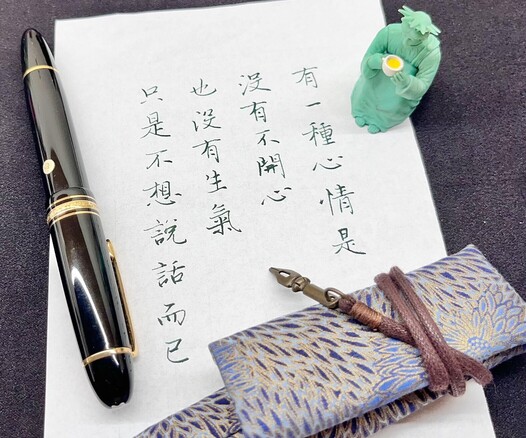 有一種心情是
沒有不開心
也沒有生氣
只是不想說話而已